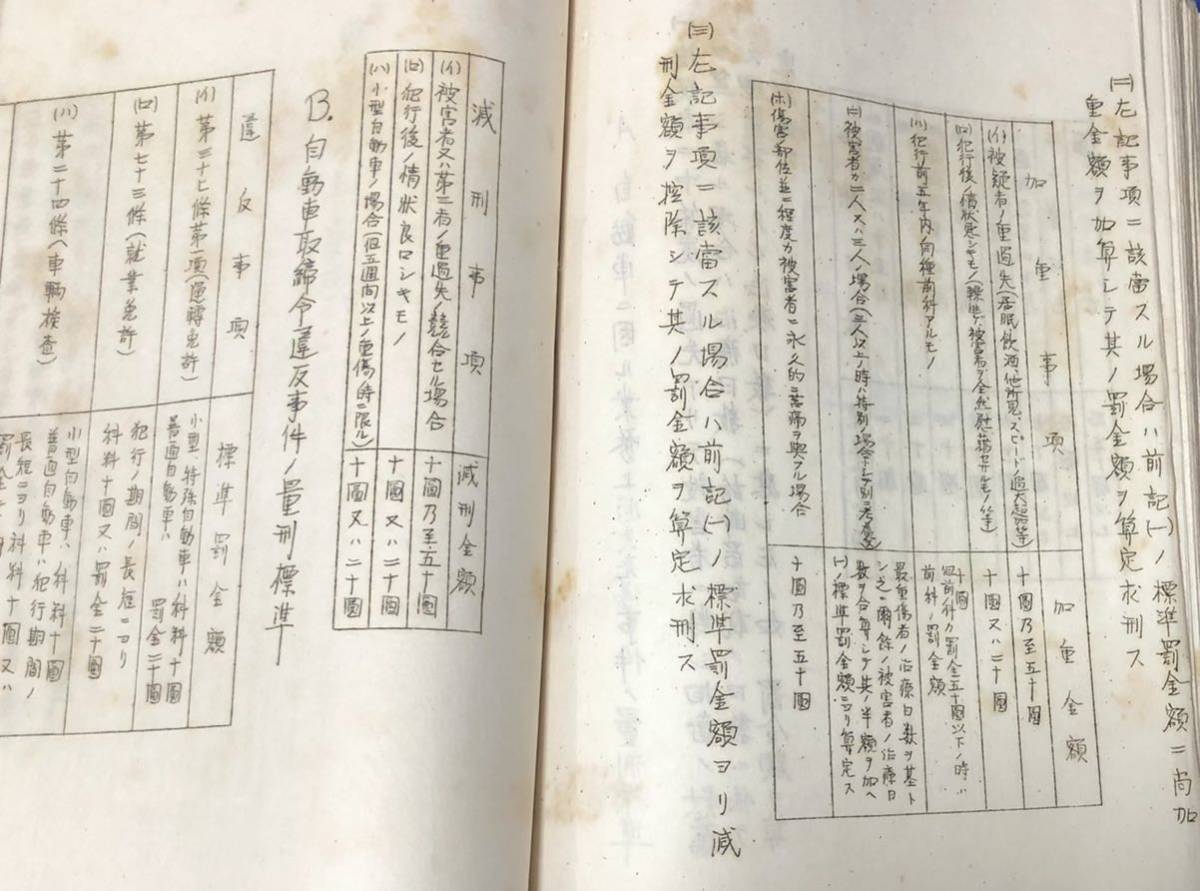 (二)左記事項ニ該當スル場合ハ前記(一)ノ標準罰金額ニ尚加
重金額ヲ加算シテ其ノ罰金額ヲ算定求刑ス
加重事項
加重金額
(イ)被疑者ノ重過失(居眠、飲酒、他所見、スピードノ過大超過等)
十圓乃至五十圓
(ロ)犯行後ノ情状悪シキモノ(轢逃ゲ、被害者ヲ全然慰藉セザルモノ等)
十圓又ハ二十圓
(ハ)犯行前五年内同種前科アルモノ
十圓
但前科ガ罰金五十圓以下ノ時ハ
前科ノ罰金額
(ニ)被害者ガ二人又ハ三人ノ場合(三人以上ノ時ハ特別ノ場合トシテ別ニ考慮)
最重傷者ノ治療日数ヲ基ト
シ之ニ爾餘ノ被害者ノ治療日
数ヲ合算シテ其ノ半額ヲ加ヘ
(一)ノ標準罰金額ニヨリ算定ス
(ホ)傷害部位並ニ程度ガ被害者ニ永久的ニ苦痛ヲ與フル場合
十圓乃至五十圓
(三)左記事項ニ該當スル場合ハ前記(一)ノ標準罰金額ヨリ減
刑金額ヲ控除シテ其ノ罰金額ヲ算定求刑ス
減刑事項
減刑金額
(イ)被害者又ハ第三者ノ重過失ノ競合セル場合
十圓乃至五十圓
(ロ)犯行後ノ情状良ロシキモノ
十圓又ハ二十圓
(ハ)小型自動車ノ場合(但五週間以上ノ重傷ノ時ニ限ル)
十圓又ハ二十圓
B.自動車取締令違反事件ノ量刑標準
違反事項
標準罰金額
(イ)第三十七條第一項(運轉免許)
小型、特殊自動車ハ科料十圓
普通自動車ハ罰金二十圓
(ロ)第七十三條(就業免許)
犯行ノ期間ノ長短ニヨリ
科料十圓又ハ罰金二十圓
(ハ)第二十四條(車輌検査)
小型自動車ハ科料十圓
普通自動車ハ犯行期間ノ
長短ニヨリ科料十圓又ハ